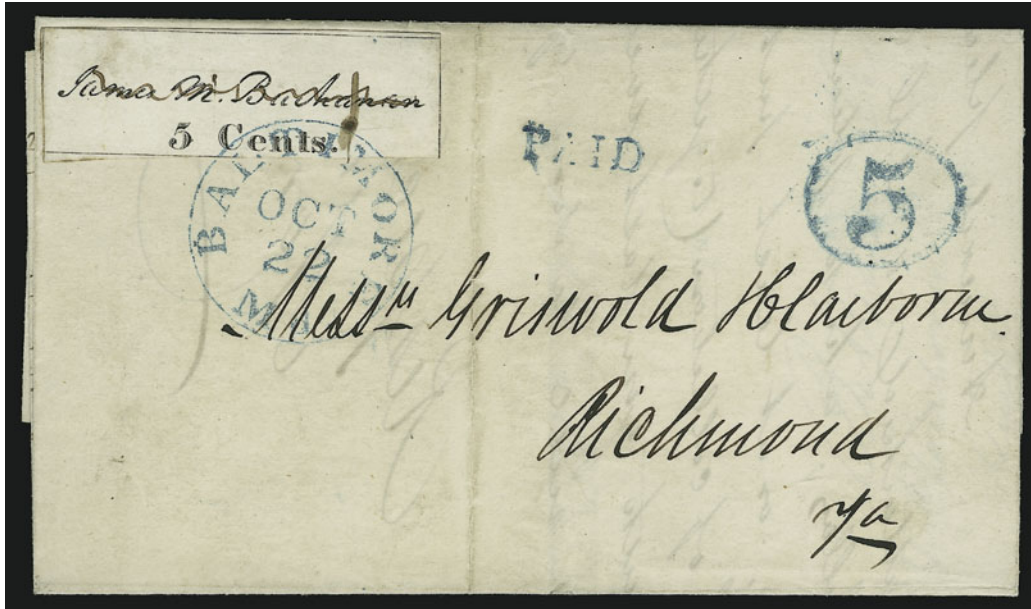 James M. Buchanan
5 Cents.
PAID
5
BALTIMORE
OCT
22
Md.
Messrs Griswold & Claiborne.
Richmond
Va